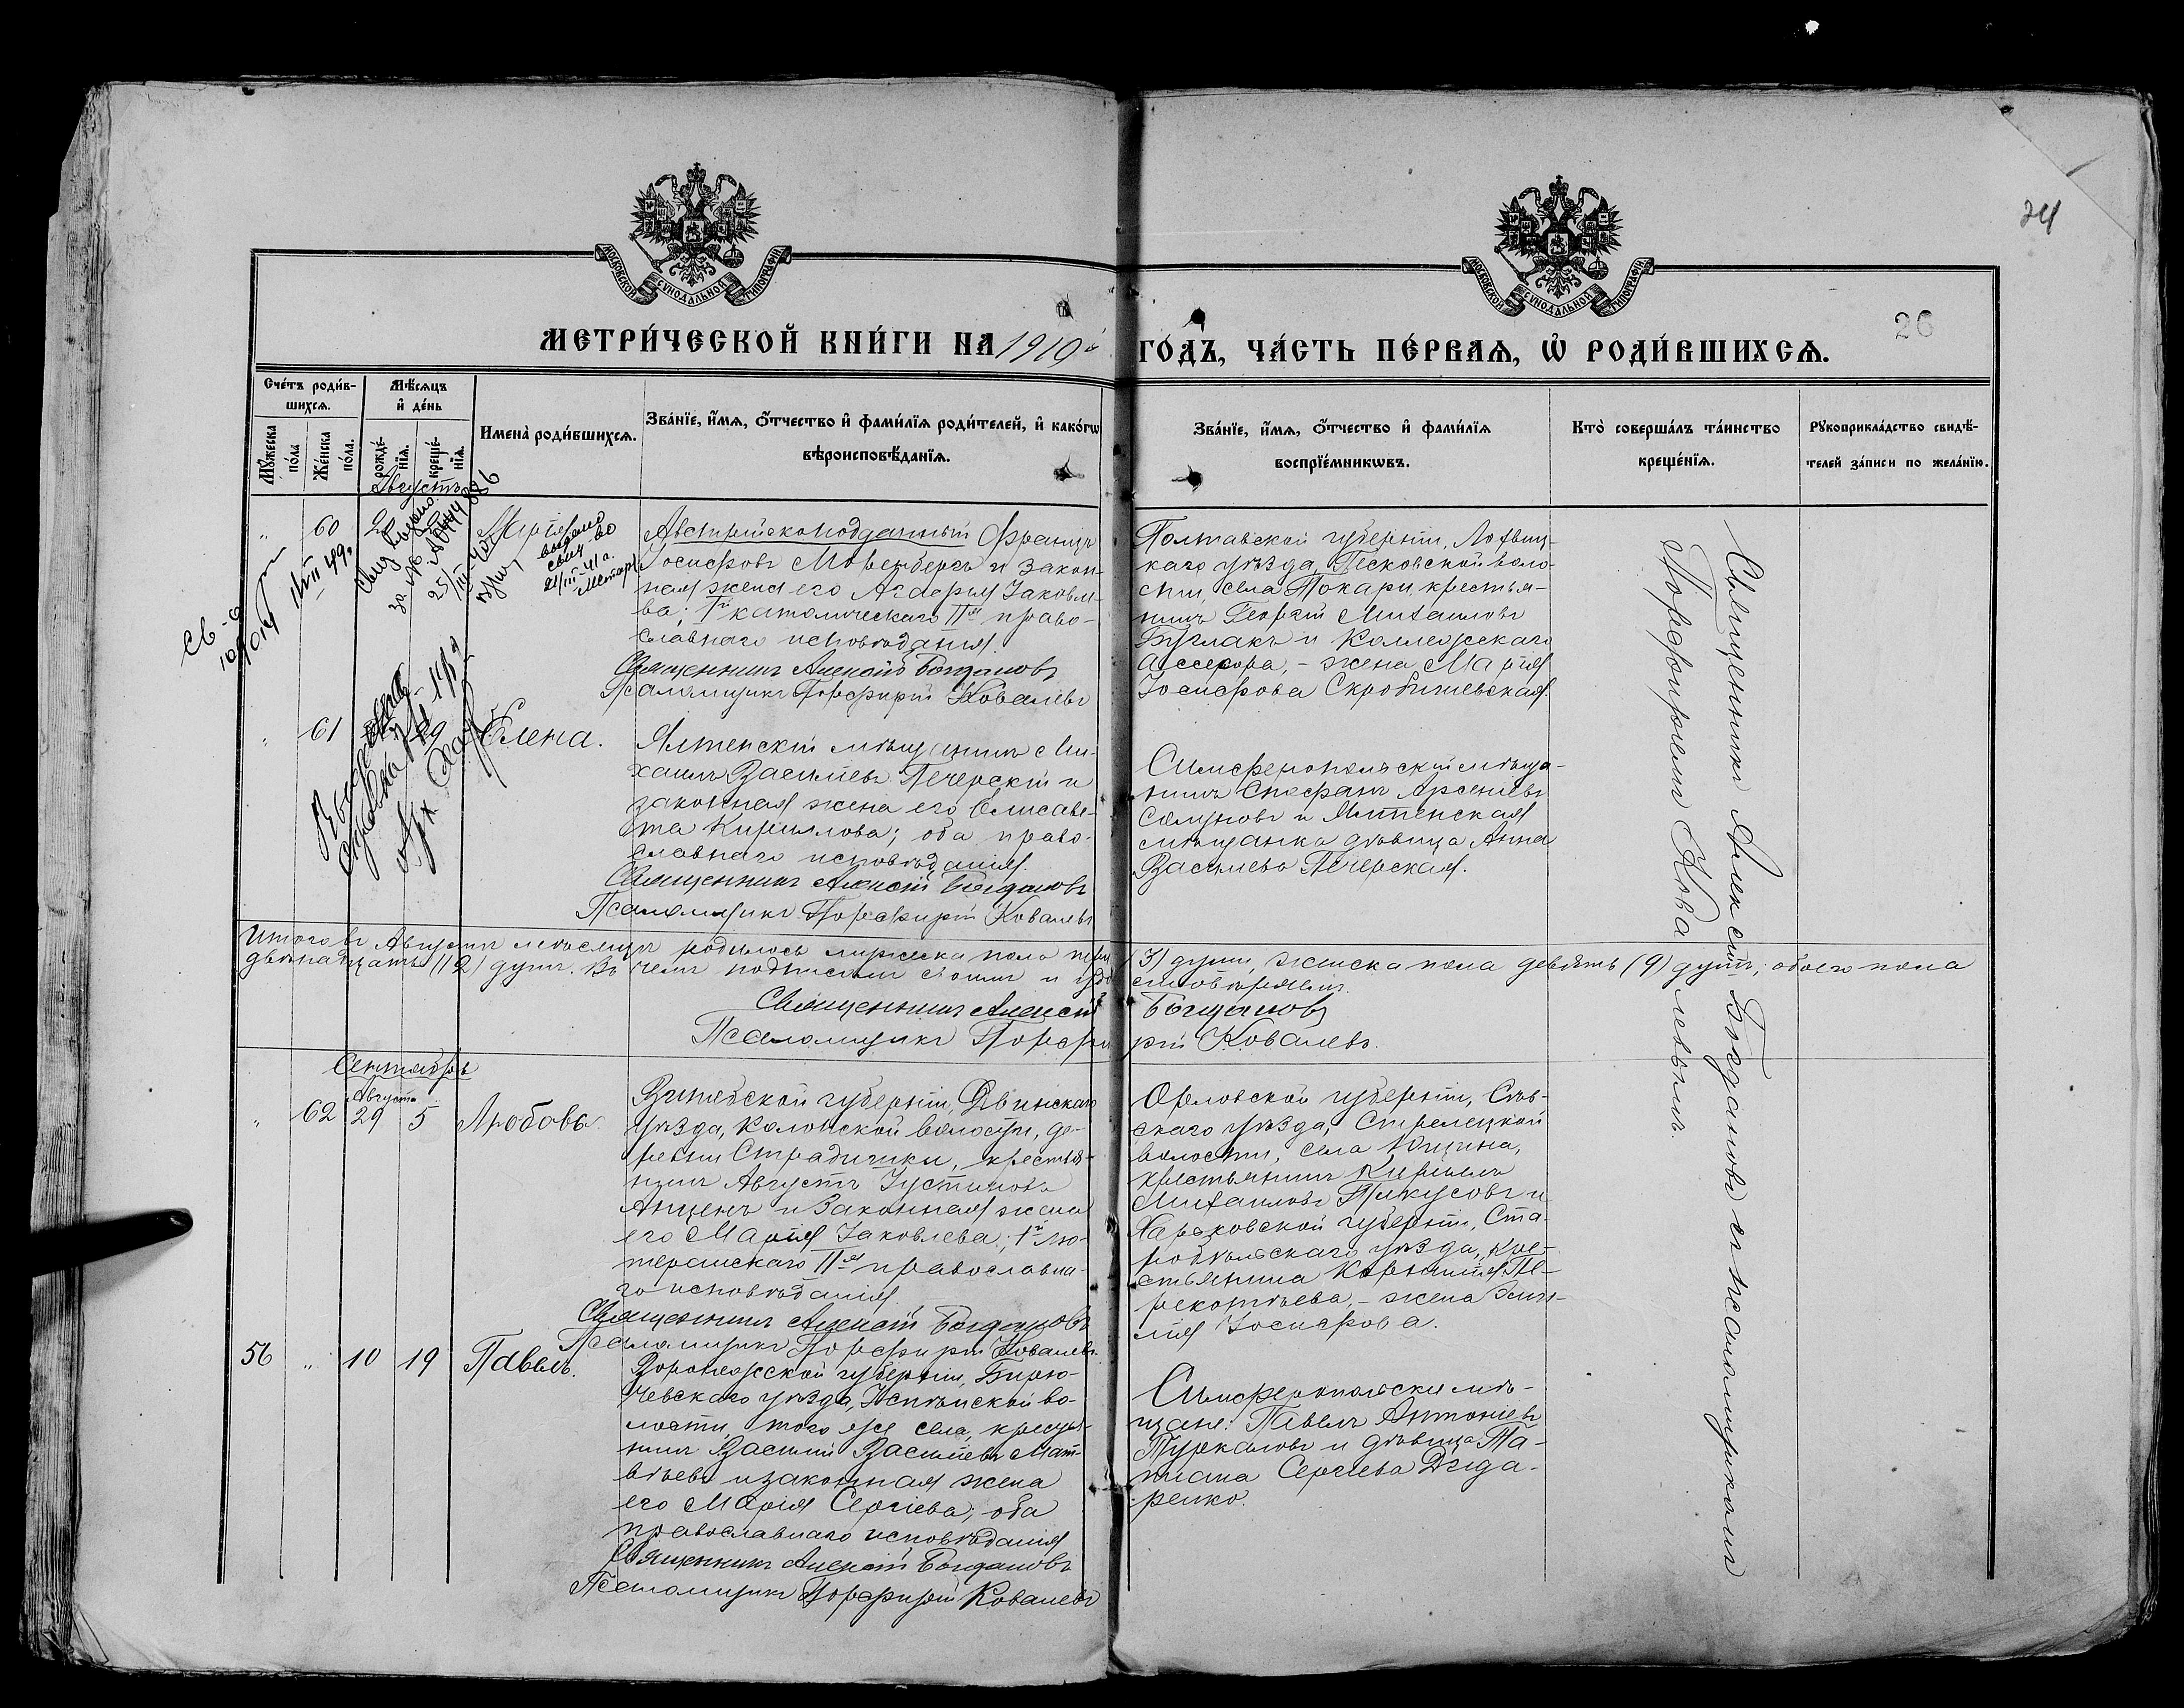 24
26
МОСКОВСКОЙ СѴНОДАЛЬНОЙ ТИПОГРАФІИ
МОСКОВСКОЙ СѴНОДАЛЬНОЙ ТИПОГРАФІИ
МЕТРИ́ЧЕСКОЙ КНИ́ГИ НА 1910й ГО́ДЪ, ЧА́СТЬ ПЕ́РВАѦ, Ѽ РОДИ́ВШИХСѦ.
Сче́тъ роди́в-
шихсѧ.
Мꙋ́жеска
по́ла
Же́нска
по́ла.
Мѣ́сѧцъ
и҆ де́нь
рожде́-
нїѧ.
креще́-
нїѧ.
Имена̀ роди́вшихсѧ.
Зва́нїе, и҆́мѧ, ѻ҆́тчество и҆ фами́лїѧ роди́телей, и҆ како́гѡ
вѣроисповѣ́данїѧ.
Зва́нїе, и҆́мѧ, ѻ҆́тчество и҆ фами́лїѧ
воспрїе́мникѡвъ.
Кто̀ соверша́лъ та́инство
креще́нїѧ.
Рꙋкоприкла́дство свидѣ́-
телей за́писи по жела́нїю.
Августъ
„ 60
Марія
Австрійскоподданный Францъ
Іосифовъ Мовенбергъ и закон-
ная жена его Агафья Іаковле-
ва; Iй католическаго IIя право-
славнаго исповѣданія.
Священникъ Алексій Богдановъ
Псаломщикъ Порфирій Ковалевъ
Полтавской губерніи, Лохвиц-
каго уѣзда, Песковской воло-
сти, села Токари, крестья-
нинъ Георгій Михаиловъ
Буглакъ и Коллежскаго
ассесора, - жена Марія
Іосифова Скробишевская.
„ 61 29 Елена.
Ялтенскій мѣщанинъ Ми-
хаилъ Васильевъ Печерскій и
законная жена его Елисаве-
та Кириллова; оба право-
славнаго исповѣданія.
Священникъ Алексій Богдановъ
Псаломщикъ Порфирій Ковалевъ
Симферопольскій мѣща-
нинъ Стефанъ Арсеніевъ
и Ялтенская
мѣщанка дѣвица Анна
Васильева Печерская.
Итого въ Августѣ мѣсяцѣ родилось мужска пола три (3) души, женска пола девять (9) душъ; обоего пола
двѣнадцать (12) душъ. Въ чемъ подписомъ своимъ и удостовѣряемъ.
Священникъ Алексій Богдановъ
Псаломщикъ Порфирій Ковалевъ.
Сентябрь
Августа
„ 62 29 5 Любовь.
Витебской губерніи, Двинскаго
уѣзда, Колопской волости, де-
ревни Страдишки, крестья-
нинъ Августъ Іустиновъ
Анценъ и законная жена
его Марія Іаковлева; Iй лю-
теранскаго IIя православна-
го исповѣданія.
Священникъ Алексій Богдановъ
Псаломщикъ Порфирій Ковалевъ.
Орловской губерніи, Сѣв-
скаго уѣзда, Стрелецкой
волости, села Юшина,
крестьянинъ Кириллъ
Михаиловъ и
Харьковской губерніи, Ста-
робѣльскаго уѣзда, кре-
стьянина Корнилія Пе-
рекотіева, - жена
Іосифова.
56 „ 10 19 Павелъ.
Воронежской губерніи, Бирю-
чевскаго уѣзда, во-
лости, того же села, крестья-
нинъ Василій Васильевъ Мат-
вѣевъ и законная жена
его Марія Сергіева; оба
православнаго исповѣданія
Священникъ Алексій Богдановъ
Псаломщикъ Порфирій Ковалевъ
Симферопольскіе мѣ-
щане: Павелъ Антоніевъ
Туркаловъ и дѣвица Та-
тіана Сергіева Дида-
ренко.
Священникъ Алексій Богдановъ съ псаломщикомъ
Порфиріемъ Ковалевымъ.